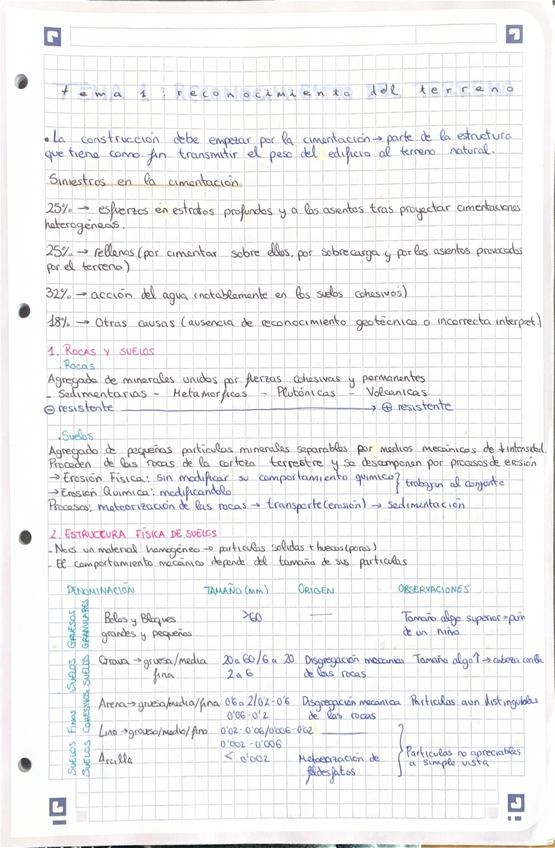 tema 1: reconocimiento del terreno
• La construcción debe empezar por la cimentación → parte de la estructura
que tiene como fin transmitir el peso del edificio al terreno natural.
Siniestros en la cimentación
25% → esfuerzos en estratos profundos y a los asientos tras proyectar cimentaciones
heterogéneas.
25% → rellenos (por cimentar sobre ellos, por sobrecarga y por los asientos provocados
por el terreno)
32% → acción del agua (notablemente en los suelos cohesivos)
18% → Otras causas (ausencia de reconocimiento geotécnico o incorrecta interpret)
1. ROCAS Y SUELOS
. Rocas
Agregado de minerales unidos por fuerzas cohesivas y permanentes
- Sedimentarias - Metamorficas - Plutónicas - Volcanicas
⊖ resistente → ⊕ resistente
. Suelos
Agregado de pequeñas particulas minerales separables por medios mecanicos de ↓ intensidad.
Proceden de las rocas de la corteza terrestre y se descomponen por procesos de erosión
→ Erosión Física: sin modificar su comportamiento quimico } trabajan al conjunto
→ Erosión Quimica: modificandolo
Procesos: meteorización de las rocas → transporte (erosión) → sedimentación
2. ESTRUCTURA FÍSICA DE SUELOS
- No es un material homogéneo → particulas solidas + huecos (poros)
- El comportamiento mecánico depende del tamaño de sus particulas
DENOMINACIÓN TAMAÑO (mm) ORIGEN OBSERVACIONES
SUELOS GRUESOS
SUELOS GRANULARES
Bolos y Bloques >60 — Tamaño algo superior → puño
grandes y pequeños de un niño
Grava → gruesa/media 20 a 60/6 a 20 Disgregación mecanica Tamaño algo ↑ → cabeza cerilla
fina 2 a 6 de las rocas
Arena → gruesa/media/fina 0'6 a 2/0'2-0'6 Disgregación mecanica Particulas aun distinguibles
0'06-0'2 de las rocas
SUELOS FINOS
SUELOS COHESIVOS
Limo → grueso/medio/fino 0'02-0'06/0'006-0'02 —
0'002-0'006
Arcilla < 0'002 Meteorización de } Particulas no apreciables
feldespatos a simple vista